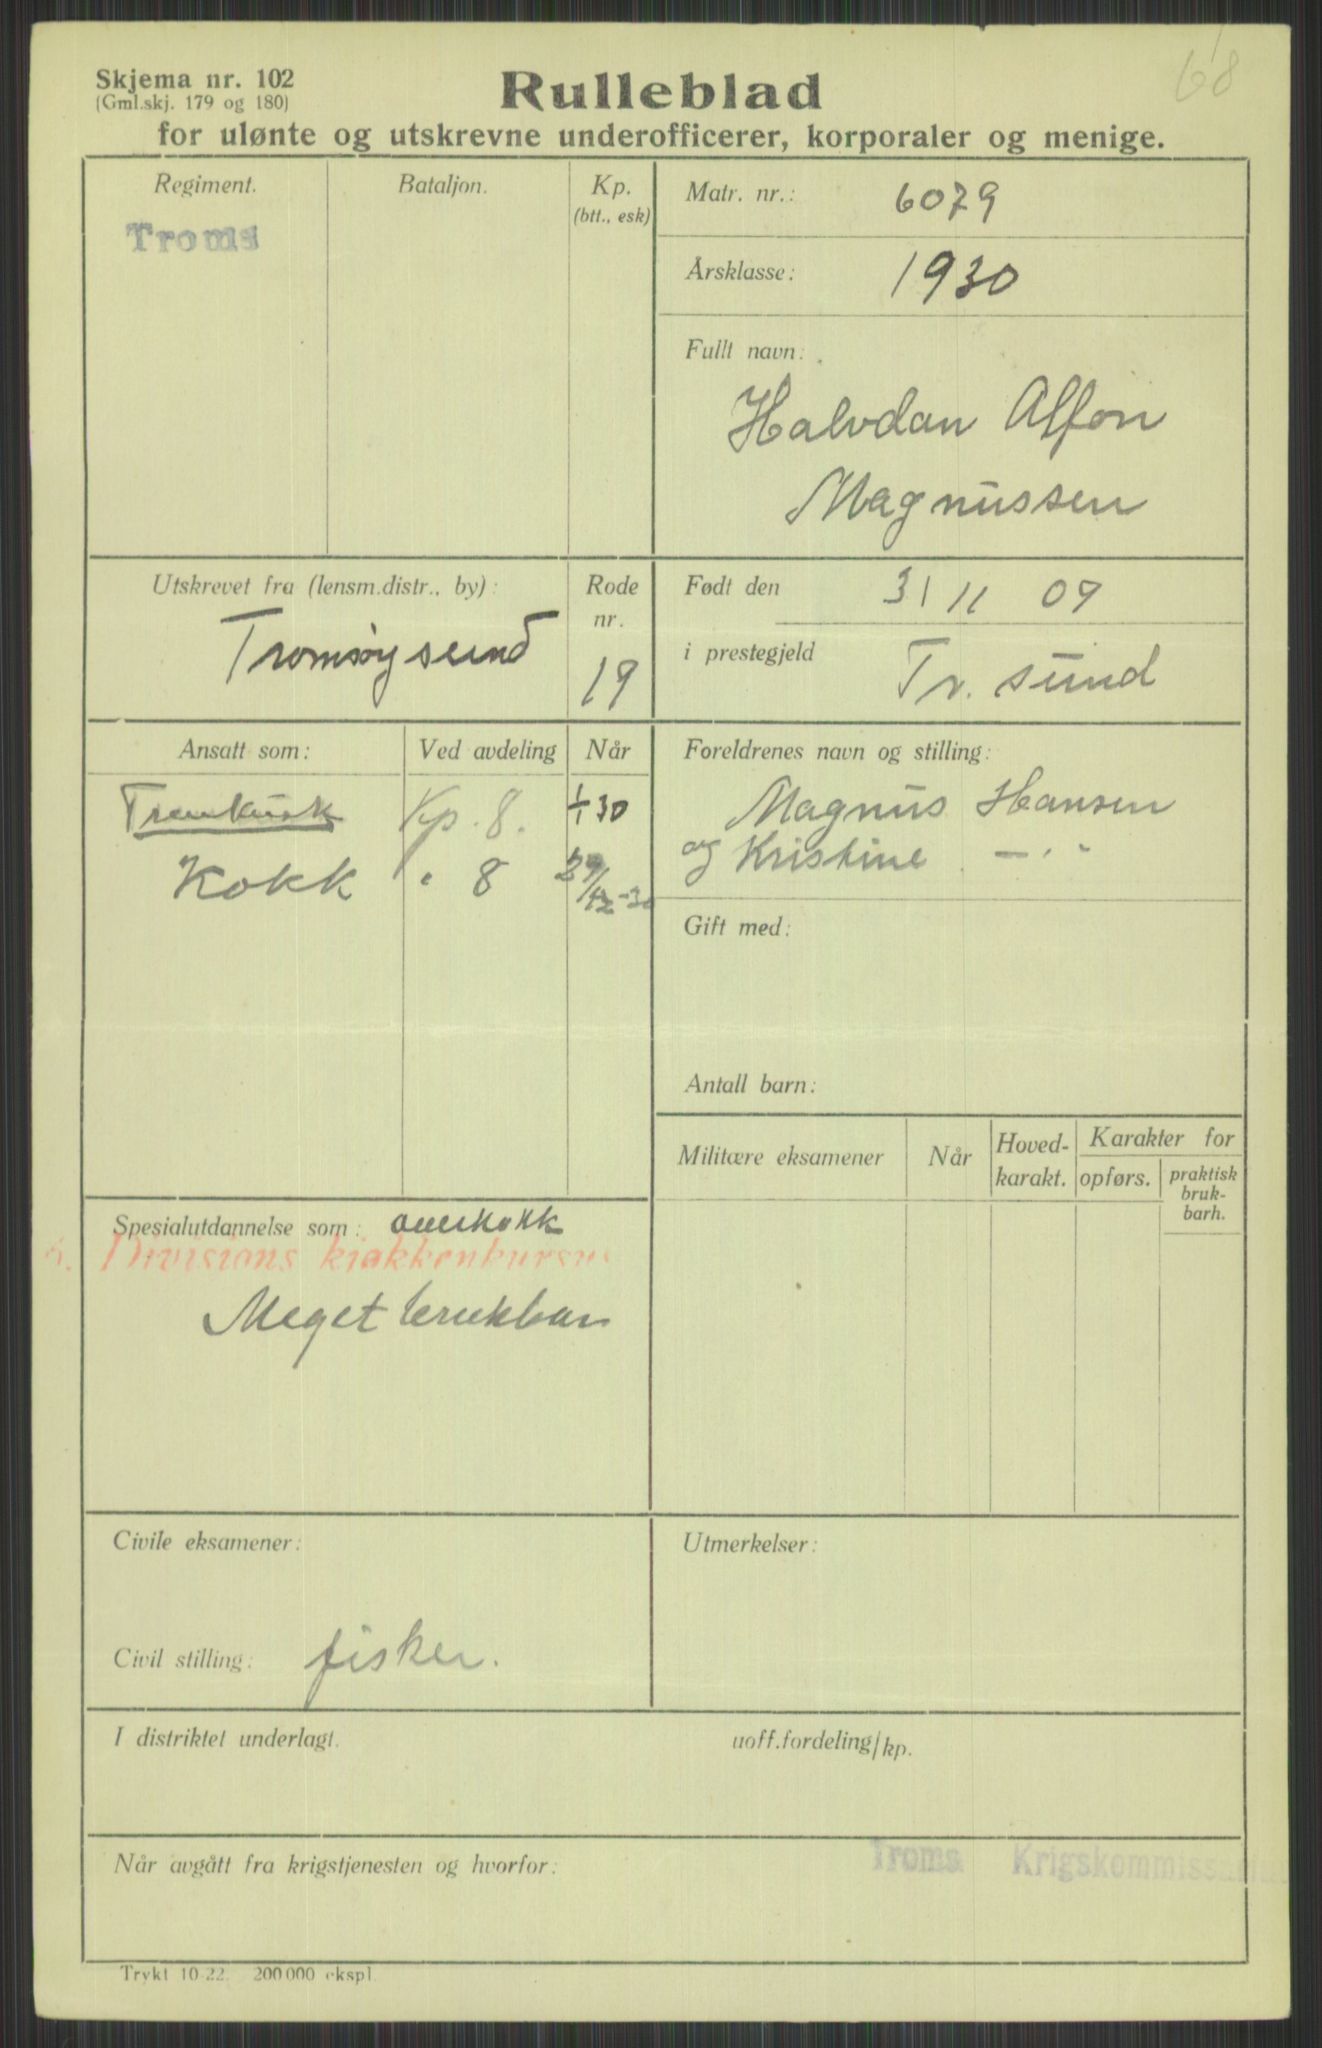 68
Skjema nr. 102
(Gml.skj. 179 og 180)
Rulleblad
for ulønte og utskrevne underofficerer, korporaler og menige.
Regiment.
Troms
Bataljon.
Kp.
(btt., esk)
Matr. nr.: 6079
Årsklasse: 1930
Fullt navn:
Halvdan Alfon
Magnussen
Utskrevet fra (lensm.distr., by):
Tromsøysund
Rode
nr.
19
Født den 3/11 09
i prestegjeld Tr. sund
Ansatt som: Ved avdeling Når
Trenkusk Kp. 8. 1/1 30
Kokk " 8
Foreldrenes navn og stilling:
Magnus Hansen
og Kristine — " -
Gift med:
Antall barn:
Militære eksamener
Når
Hoved-
karakt.
Karakter for
opførs.
praktisk
bruk-
barh.
Spesialutdannelse som: overkokk
6. Divisions kjøkkenkursus
Meget brukbar
Civile eksamener:
Civil stilling: fisker.
Utmerkelser:
I distriktet underlagt. uoff.fordeling/kp.
Når avgått fra krigstjenesten og hvorfor:
Troms Krigskommissariat
Trykt 10-22. 200 000 ekspl.